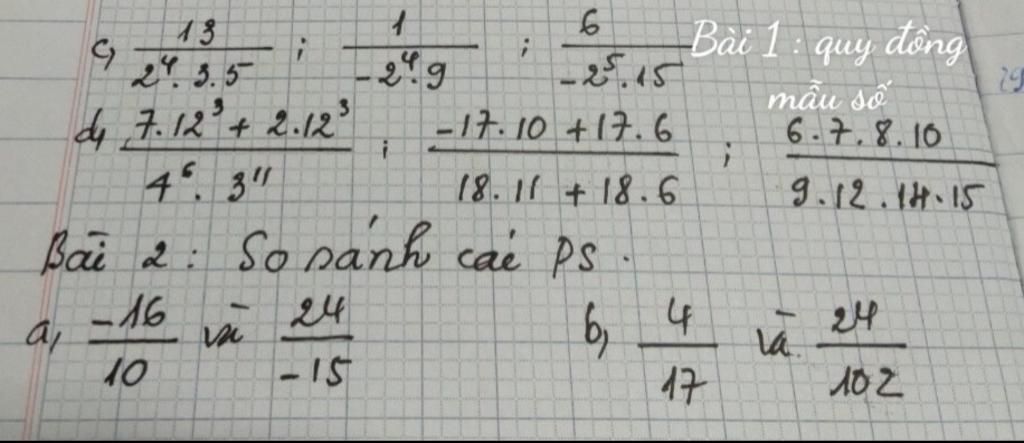 c, 13/(2⁴.3.5) ; 1/(-2⁴.9) ; 6/(-2⁵.15)
Bài 1 : quy đồng
mẫu số
d, (7.12³ + 2.12³)/(4⁶.3¹¹) ; (-17.10 + 17.6)/(18.11 + 18.6) ; (6.7.8.10)/(9.12.14.15)
Bài 2 : So sánh các PS.
a, -16/10 và 24/-15 b, 4/17 và 24/102